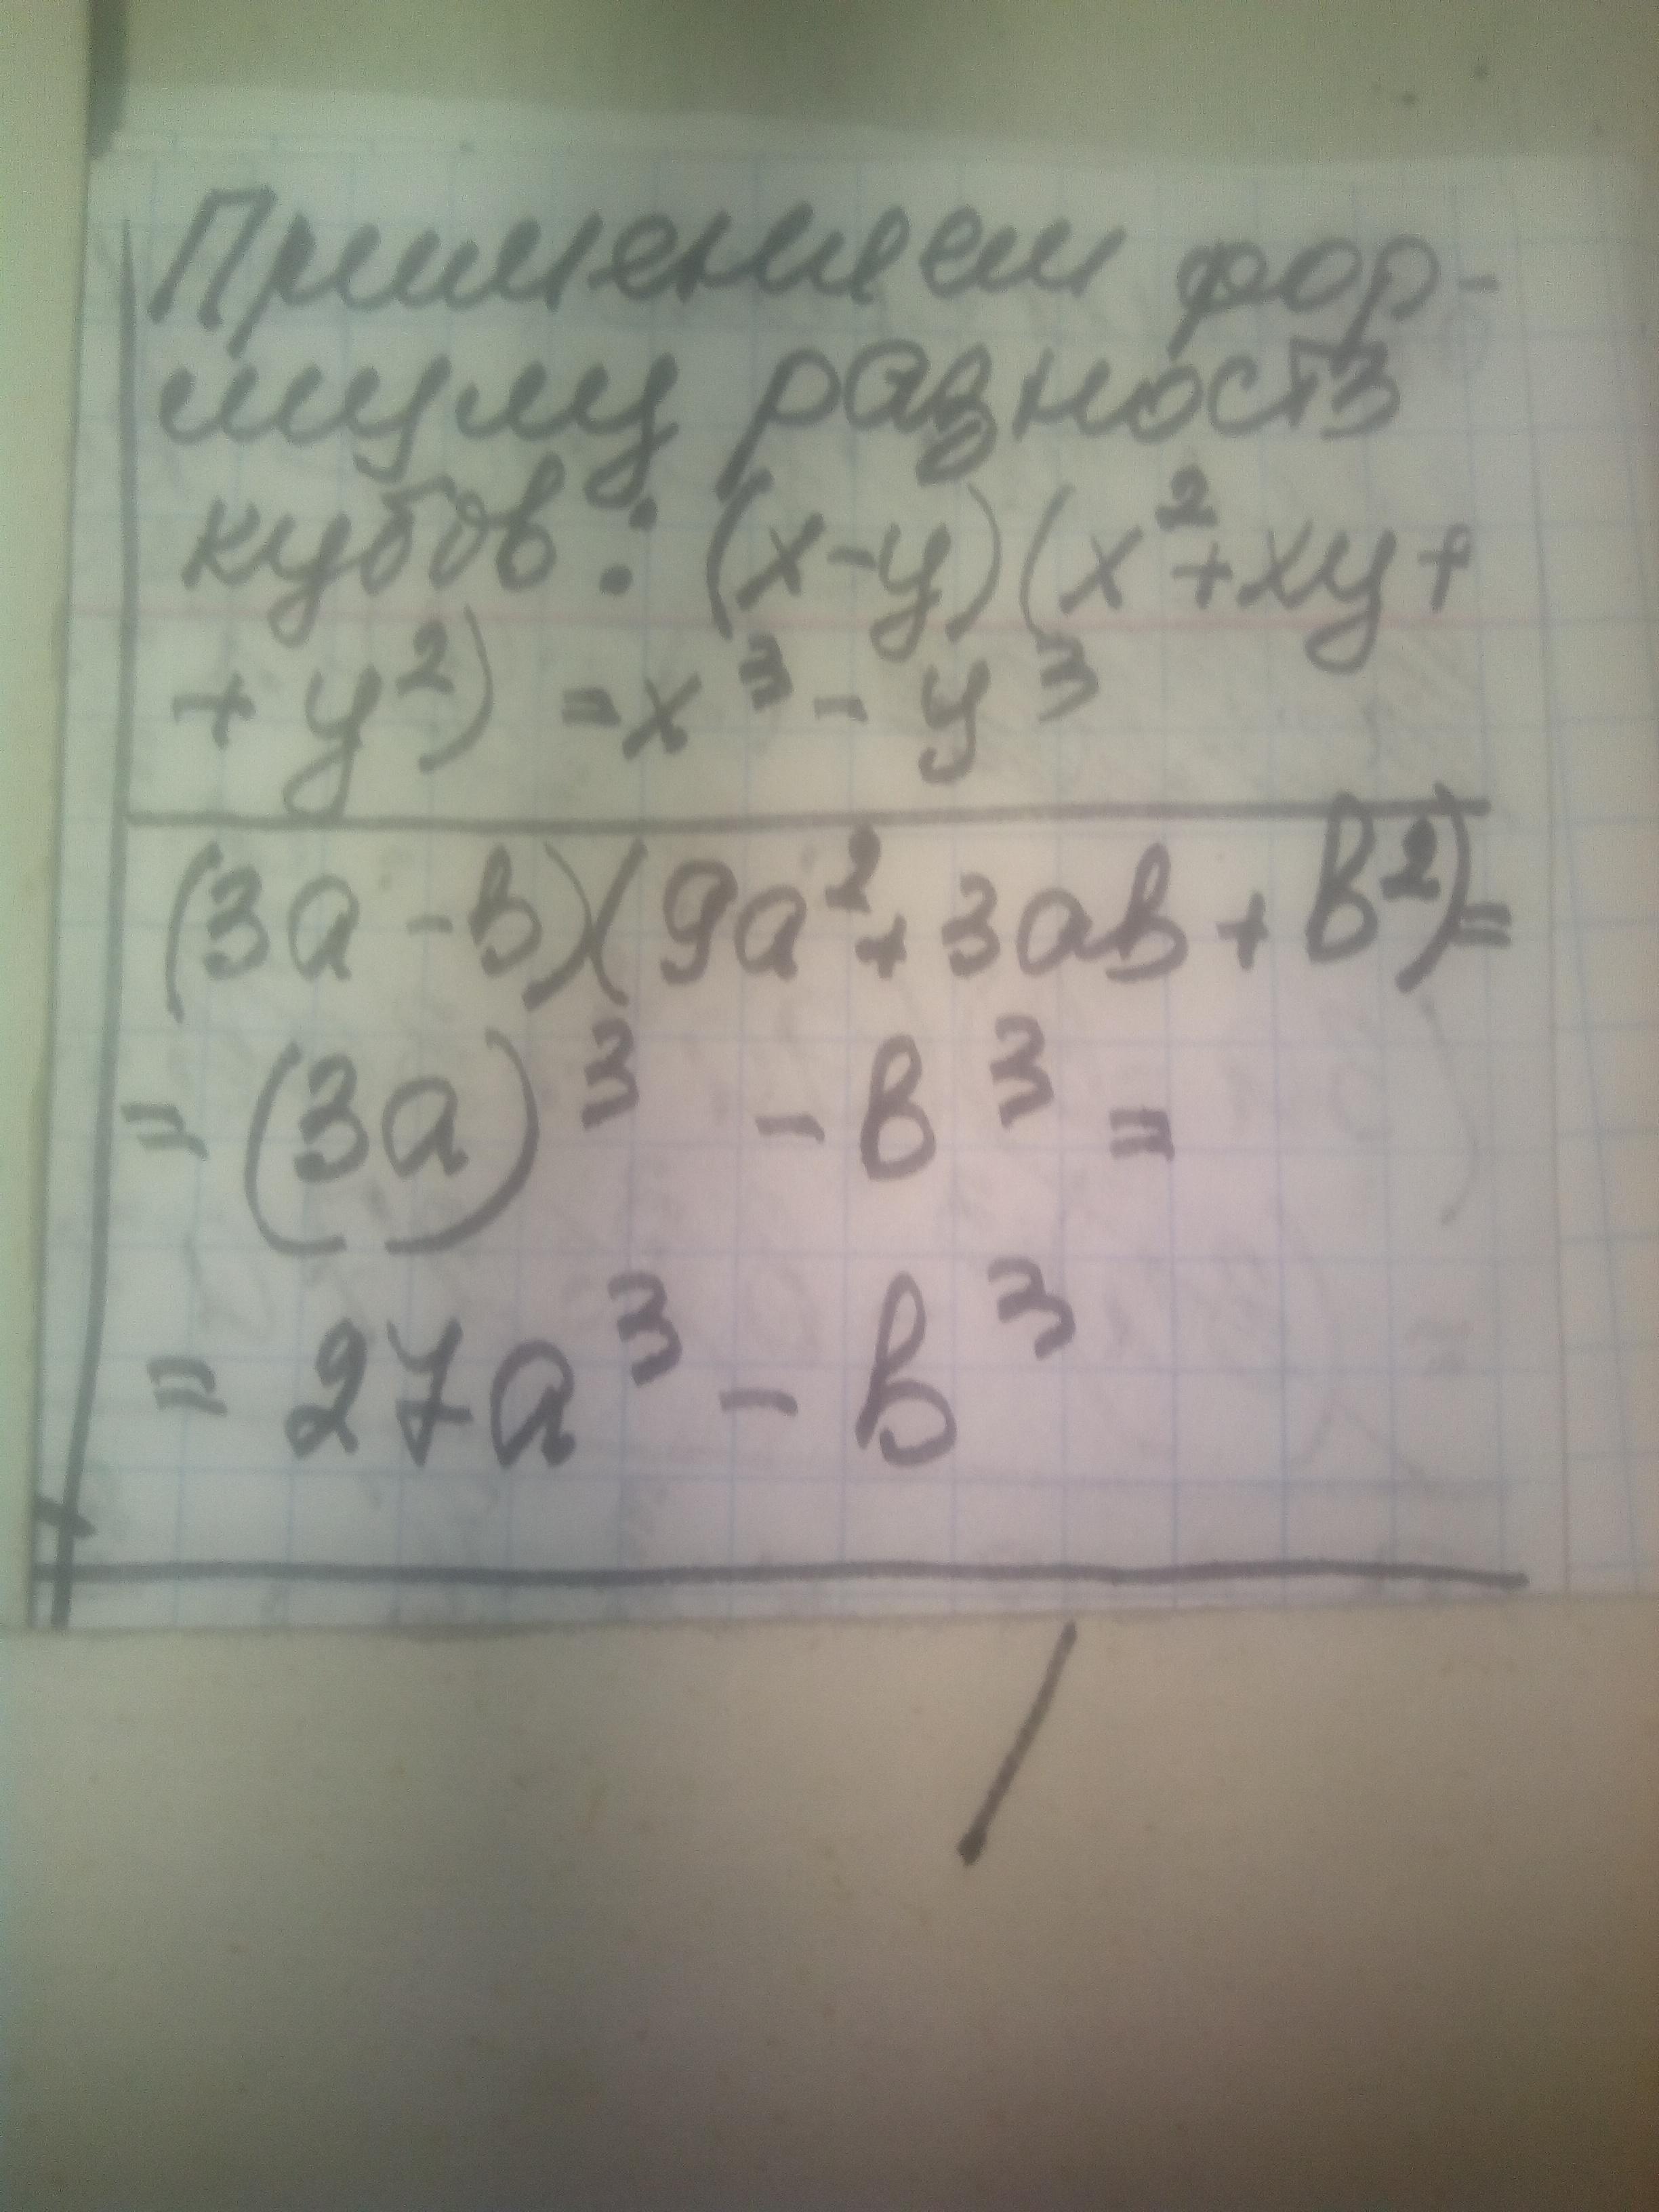 Применяем фор-
мулу разность
кубов: (x-y)(x²+xy+
+y²)=x³-y³
(3a-b)(9a²+3ab+b²)=
=(3a)³-b³=
=27a³-b³